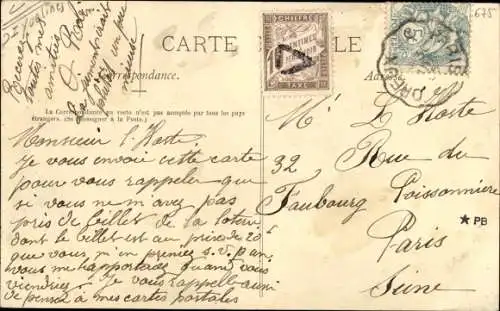 CARTE POSTALE
Correspondance.
Adresse
La Correspondance au verso n'est pas acceptée par tous les pays
étrangers. (Se renseigner à la Poste.)
Recevez
toutes mes
amitiés
O. 
Monsieur l'Hoste
Je vous envoi cette carte
pour vous rappeler que
si vous ne m'avez pas
pris de billet de la loterie
dont le billet est au prix de 20
que vous m'en preniez s.v.p en
vous me l'apporterez quand vous
viendrez. Je vous rappelle aussi
de penser à mes cartes postales
CHIFFRE
TAXE
Mr L'Hoste
32 Rue du
Faubourg Poissonnière
Paris
Seine
PB
675